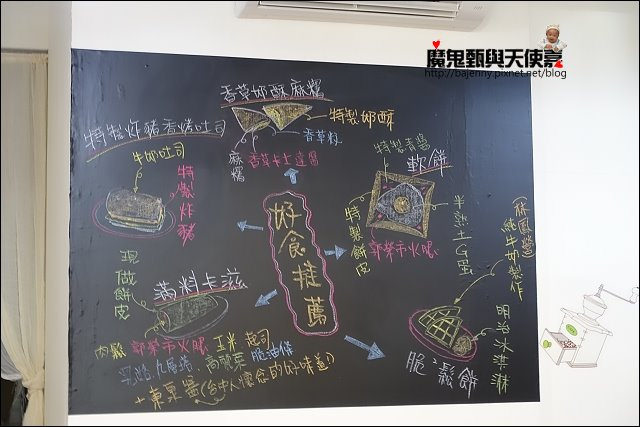 魔鬼甄與天使嘉
http://bajenny.pixnet.net/blog
香草奶酥麻糬
特製奶酥
香草籽
麻糬
香草卡士達醬
特製炸豬香烤吐司
牛奶吐司
特製炸豬
特製青醬
軟餅
半熟土G蛋
特製餅皮
郭榮市火腿
好食推薦
滿料卡滋
現做餅皮
肉鬆 郭榮市火腿 玉米 起司
乳酪 九層塔 高麗菜 脆油條
+東泉醬(台中人懷念的好味道)
(林鳳營)
純牛奶製作
明治冰淇淋
脆ㄘ鬆餅